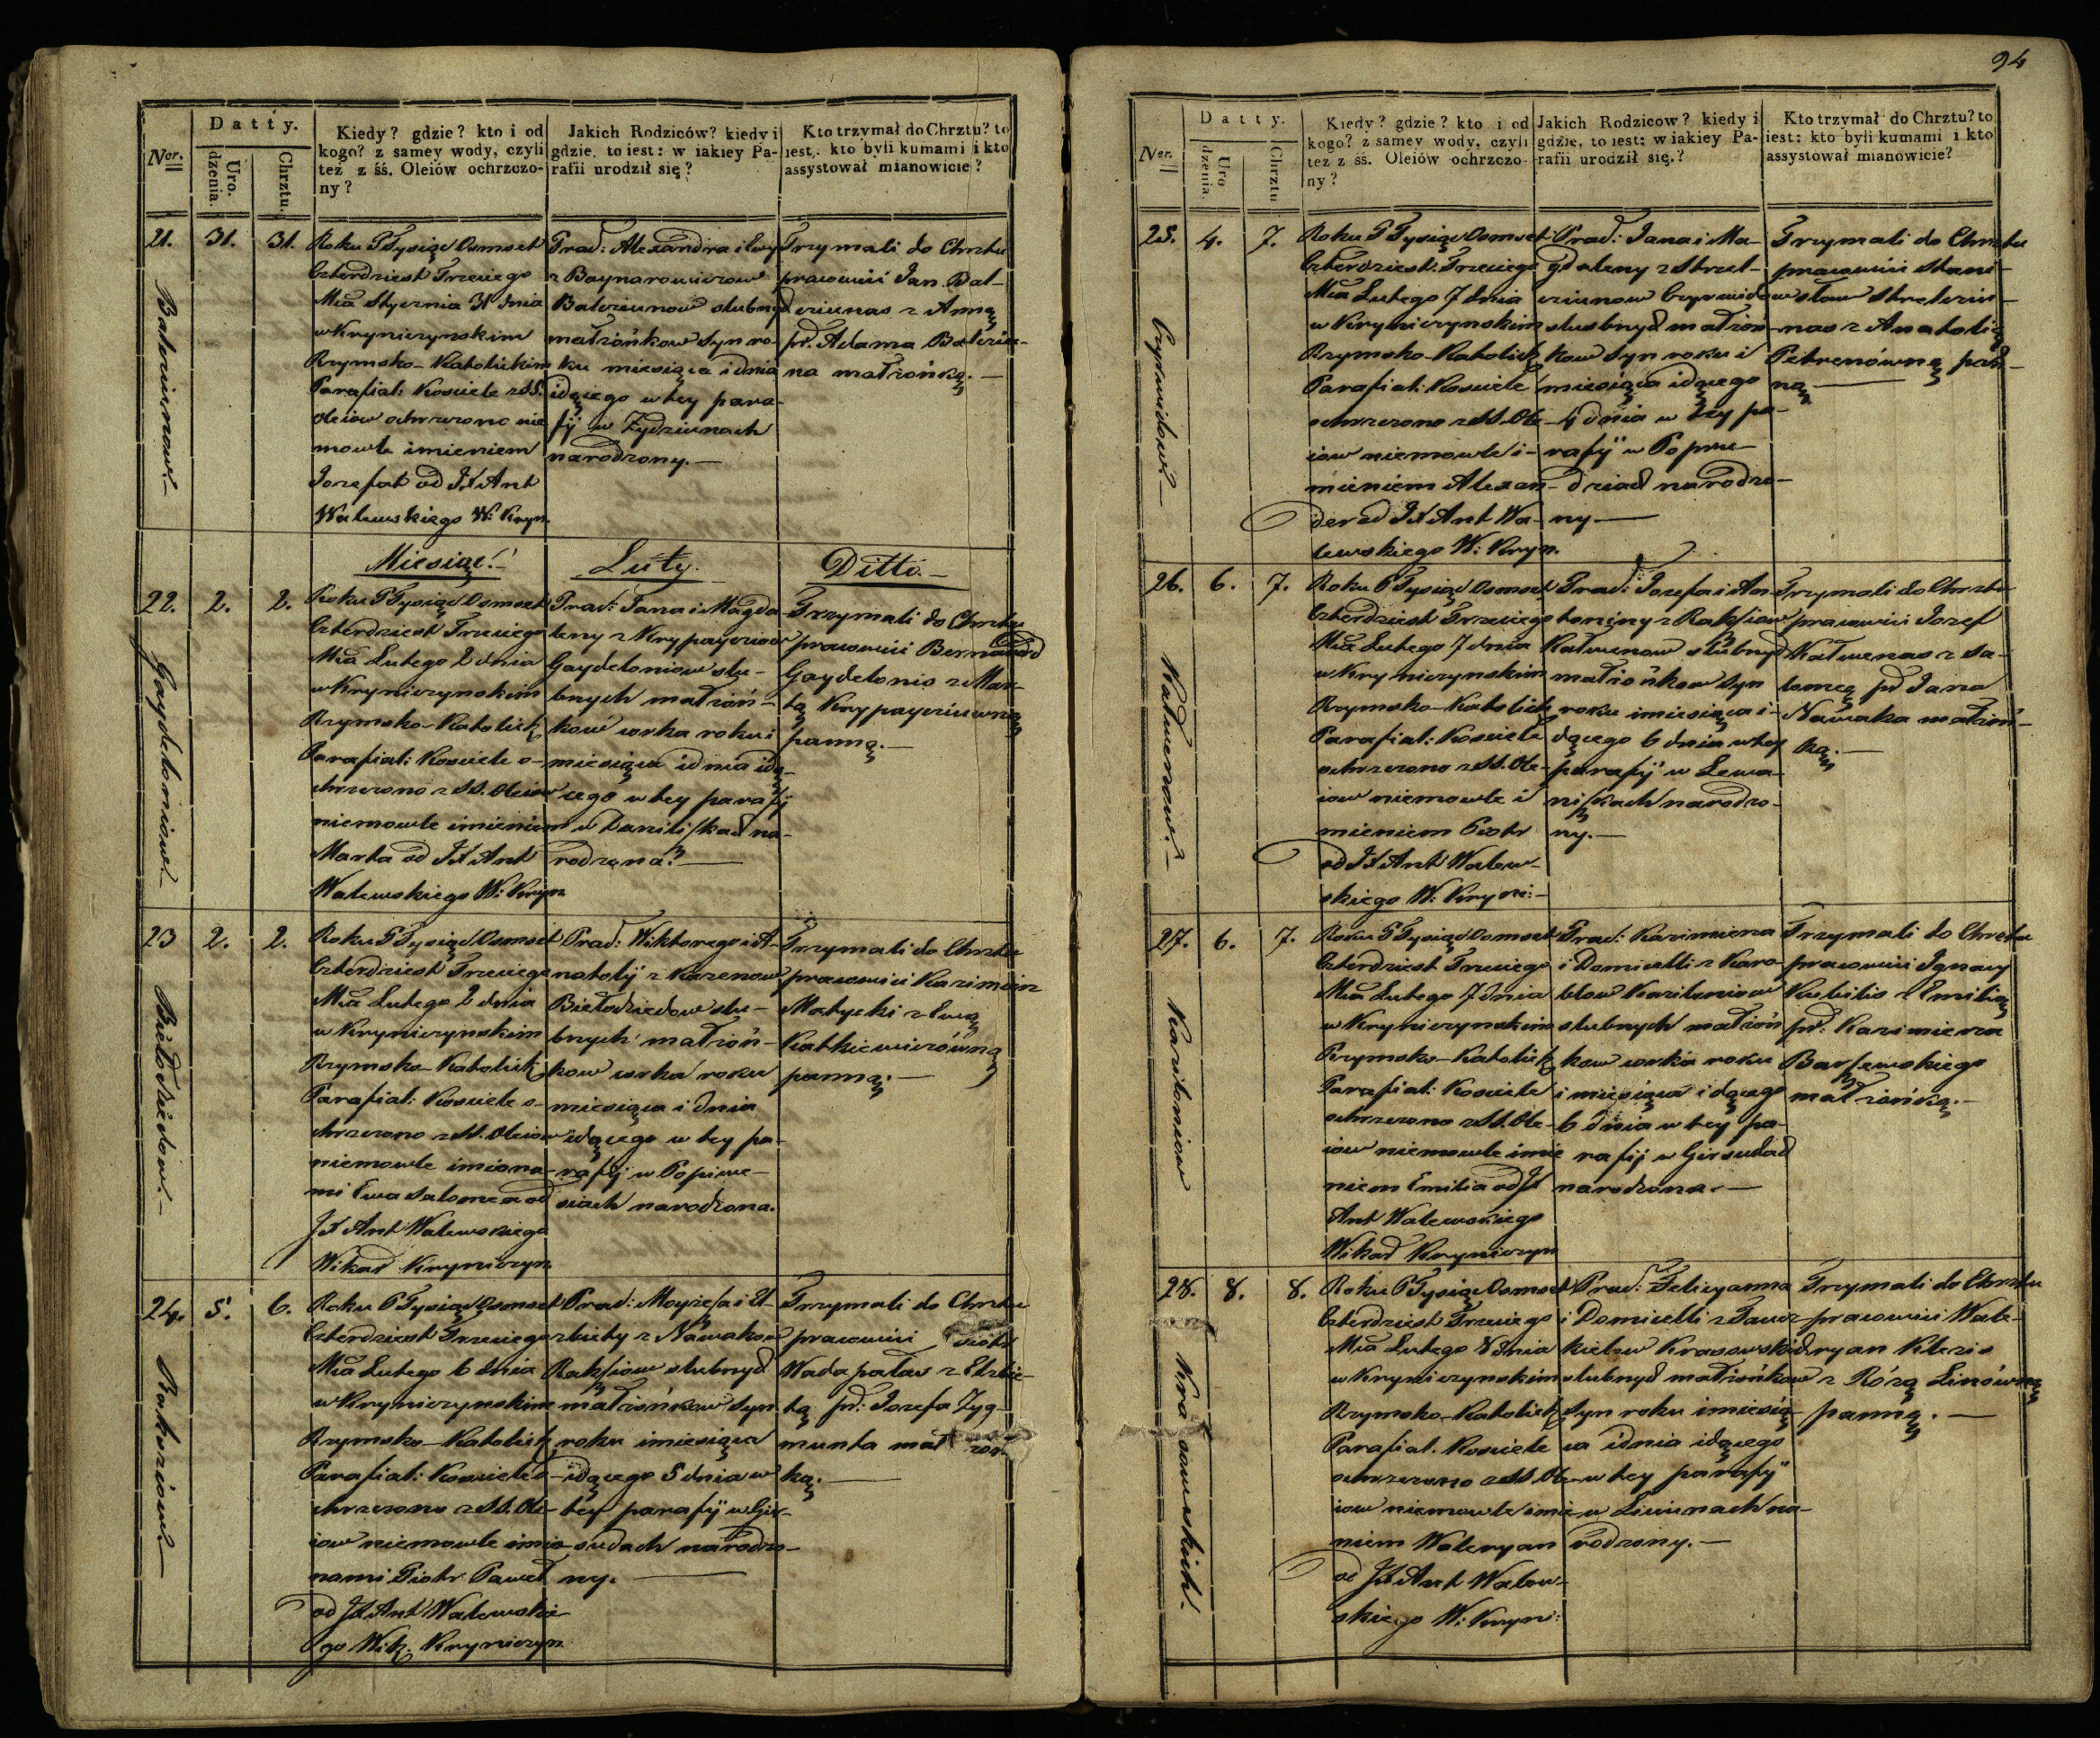 Ner.
Datty.
Uro-
dzenia.
Chrztu.
Kiedy? gdzie? kto i od
kogo? z samey wody, czyli
też z śś. Oleiów ochrzczo-
ny?
Jakich Rodziców? kiedy i
gdzie, to iest: w iakiey Pa-
rafii urodził się?
Kto trzymał do Chrztu? to
iest: kto byli kumami i kto
assystował mianowicie?
21.
31.
31.
Roku 1 Tysiąc Osmset
Czterdziest Trzeciego
Mca Stycznia 31 dnia
w Kryniczynskim
Rzymsko-Katolickim
Parafial: Kosciele z SS.
Oleiow ochrzczono nie
mowle imieniem
Jozefat od JX Ant
Walewskiego W: Kryn.
Prac: Alexandra i Ewy
z Boynarowiczow
Balciunow slubnych
małżonkow syn ro-
ku miesiąca i dnia
idącego w tey para-
fij w Zydziunach
narodzony.—
Trzymali do Chrztu
pracowici Jan Bal-
ciunas z Anną
pr. Adama Balciu-
na małżonką.—
Balciunow.—
Miesiąc!
Luty.
Ditto.—
22.
2.
2.
Roku 1 Tysiąc Osmset
Czterdziest Trzeciego
Mca Lutego 2 dnia
w Kryniczynskim
Rzymsko-Katolick
Parafial: Kosciele o-
chrzczono z SS. Oleiow
niemowle imieniem
Marta od JX Ant
Walewskiego W: Kryn
Prac: Jana i Magda-
leny z Krypayciow
Gaydeloniow slu-
bnych małżon-
kow corka roku i
miesiąca i dnia idą-
cego w tey parafij
w Daniliszkach na-
rodzona.—
Trzymali do Chrztu
pracowici Bernard
Gaydelonis z Mar-
tą Krypayciuwną
panną.—
Gaydeloniow.—
23
2.
2.
Roku 1 Tysiąc Osmset
Czterdziest Trzeciego
Mca Lutego 2 dnia
w Kryniczynskim
Rzymsko-Katolick
Parafial: Kosciele o-
chrzczono z SS. Oleiow
niemowle imiona-
mi Ewa Salomea od
JX Ant Walewskiego
Wikar Kryniczyn
Prac: Wiktorego i A-
natolij z Kazenow
Biełodziedow slu-
bnych małżon-
kow corka roku
miesiąca i dnia
idącego w tey pa-
rafij w Popiwe-
siach narodzona.
Trzymali do Chrztu
pracowici Kazimierz
Matycki z Ewą
Katkiewiczówną
panną.—
Biełodziedow.—
24.
5.
6.
Roku 1 Tysiąc Osmset
Czterdziest Trzeciego
Mca Lutego 6 dnia
w Kryniczynskim
Rzymsko-Katolick
Parafial: Kosciele o-
chrzczono z SS. Ole-
iow niemowle imio-
nami Piotr Paweł
od JX Ant Walewskie-
go Wik. Kryniczyn
Prac: Moyżesza i El-
zbiety z Nawakow
Rakszow slubnych
małżonkow syn
roku i miesiąca
idącego 5 dnia w
tey parafij w Gir-
sudach narodzo-
ny.—
Trzymali do Chrztu
pracowici Piotr
Wadapalas z Elzbie-
tą pr: Jozefa Zyg-
munta małżon-
ką.—
94
Ner.
Datty.
Uro
dzenia.
Chrztu
Kiedy? gdzie? kto i od
kogo? z samey wody, czyli
też z śś. Oleiów ochrzczo-
ny?
Jakich Rodziców? kiedy i
gdzie, to iest: w iakiey Pa-
rafii urodził się?
Kto trzymał do Chrztu? to
iest: kto byli kumami i kto
assystował mianowicie?
25.
4.
7.
Roku 1 Tysiąc Osmset
Czterdziest. Trzeciego
Mca Lutego 7 dnia
w Kryniczynskim
Rzymsko-Katolick
Parafial: Kosciele
ochrzczono z SS. Ole-
iow niemowle i-
mieniem Alexan-
der od JX Ant Wa-
lewskiego W: Kryn.
Prac: Jana i Ma-
gdaleny z Strzel-
ciunow
slubnych małżon-
kow syn roku i
miesiąca idącego
4 dnia w tey pa-
rafij w Popru-
dziach narodzo-
ny.—
Trzymali do Chrztu
pracowici Stani-
sław Strelciu-
nas z Anatolią
Petrenówną pan-
ną.—
26.
6.
7.
Roku 1 Tysiąc Osmset
Czterdziest Trzeciego
Mca Lutego 7 dnia
w Kryniczynskim
Rzymsko-Katolick
Parafial: Kosciele
ochrzczono z SS. Ole-
iow niemowle i
mieniem Piotr
od JX Ant Walew-
skiego W: Kryni:
Prac: Jozefa i An-
toniny z Rakszow
Katwenow slubnych
małżonkow syn
roku i miesiąca i-
dącego 6 dnia w tey
parafij w Lewa-
niszkach narodzo-
ny.—
Trzymali do Chrztu
pracowici Jozef
Katwenas z Sa-
lomeą pr Jana
Nawaka małżon-
ką.—
Katwenow.—
27.
6.
7.
Roku 1 Tysiąc Osmset
Czterdziest Trzeciego
Mca Lutego 7 dnia
w Kryniczynskim
Rzymsko-Katolick
Parafial: Kosciele
ochrzczono z SS. Ole-
iow niemowle imie
niem Emilia od JX
Ant Walewskiego
Wikar Kryniczyn
Prac: Kazimierza
i Domicelli z Karo-
blow Kaziloniow
slubnych małżon
kow corka roku
i miesiąca idącego
6 dnia w tey pa-
rafij w Girsudach
narodzona.—
Trzymali do Chrztu
pracowici Ignacy
Kubilis z Emilią
pr: Kazimierza
Barszewskiego
małżonką.—
Kaziloniow
28.
8.
8.
Roku 1 Tysiąc Osmset
Czterdziest Trzeciego
Mca Lutego 8 dnia
w Kryniczynskim
Rzymsko-Katolick
Parafial. Kosciele
ochrzczono z SS. Ole-
iow niemowle imie-
niem Waleryan
od JX Ant Walew-
skiego W: Kryni:
Prac: Felicyanna
i Domicelli z Tancz-
kielow Krasowskich
slubnych małżonkow
syn roku i miesią-
ca i dnia idącego
w tey parafij
w Liciunach na-
rodzony.—
Trzymali do Chrztu
pracowici Wale-
ryan Klezis
z Rózą Linówną
panną.—
Krasowskich.